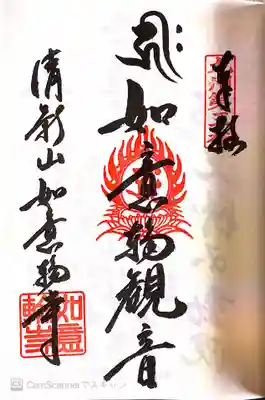 奉拝
如意輪観音
清影山如意輪寺
如意輪寺
CamScannerでスキャン